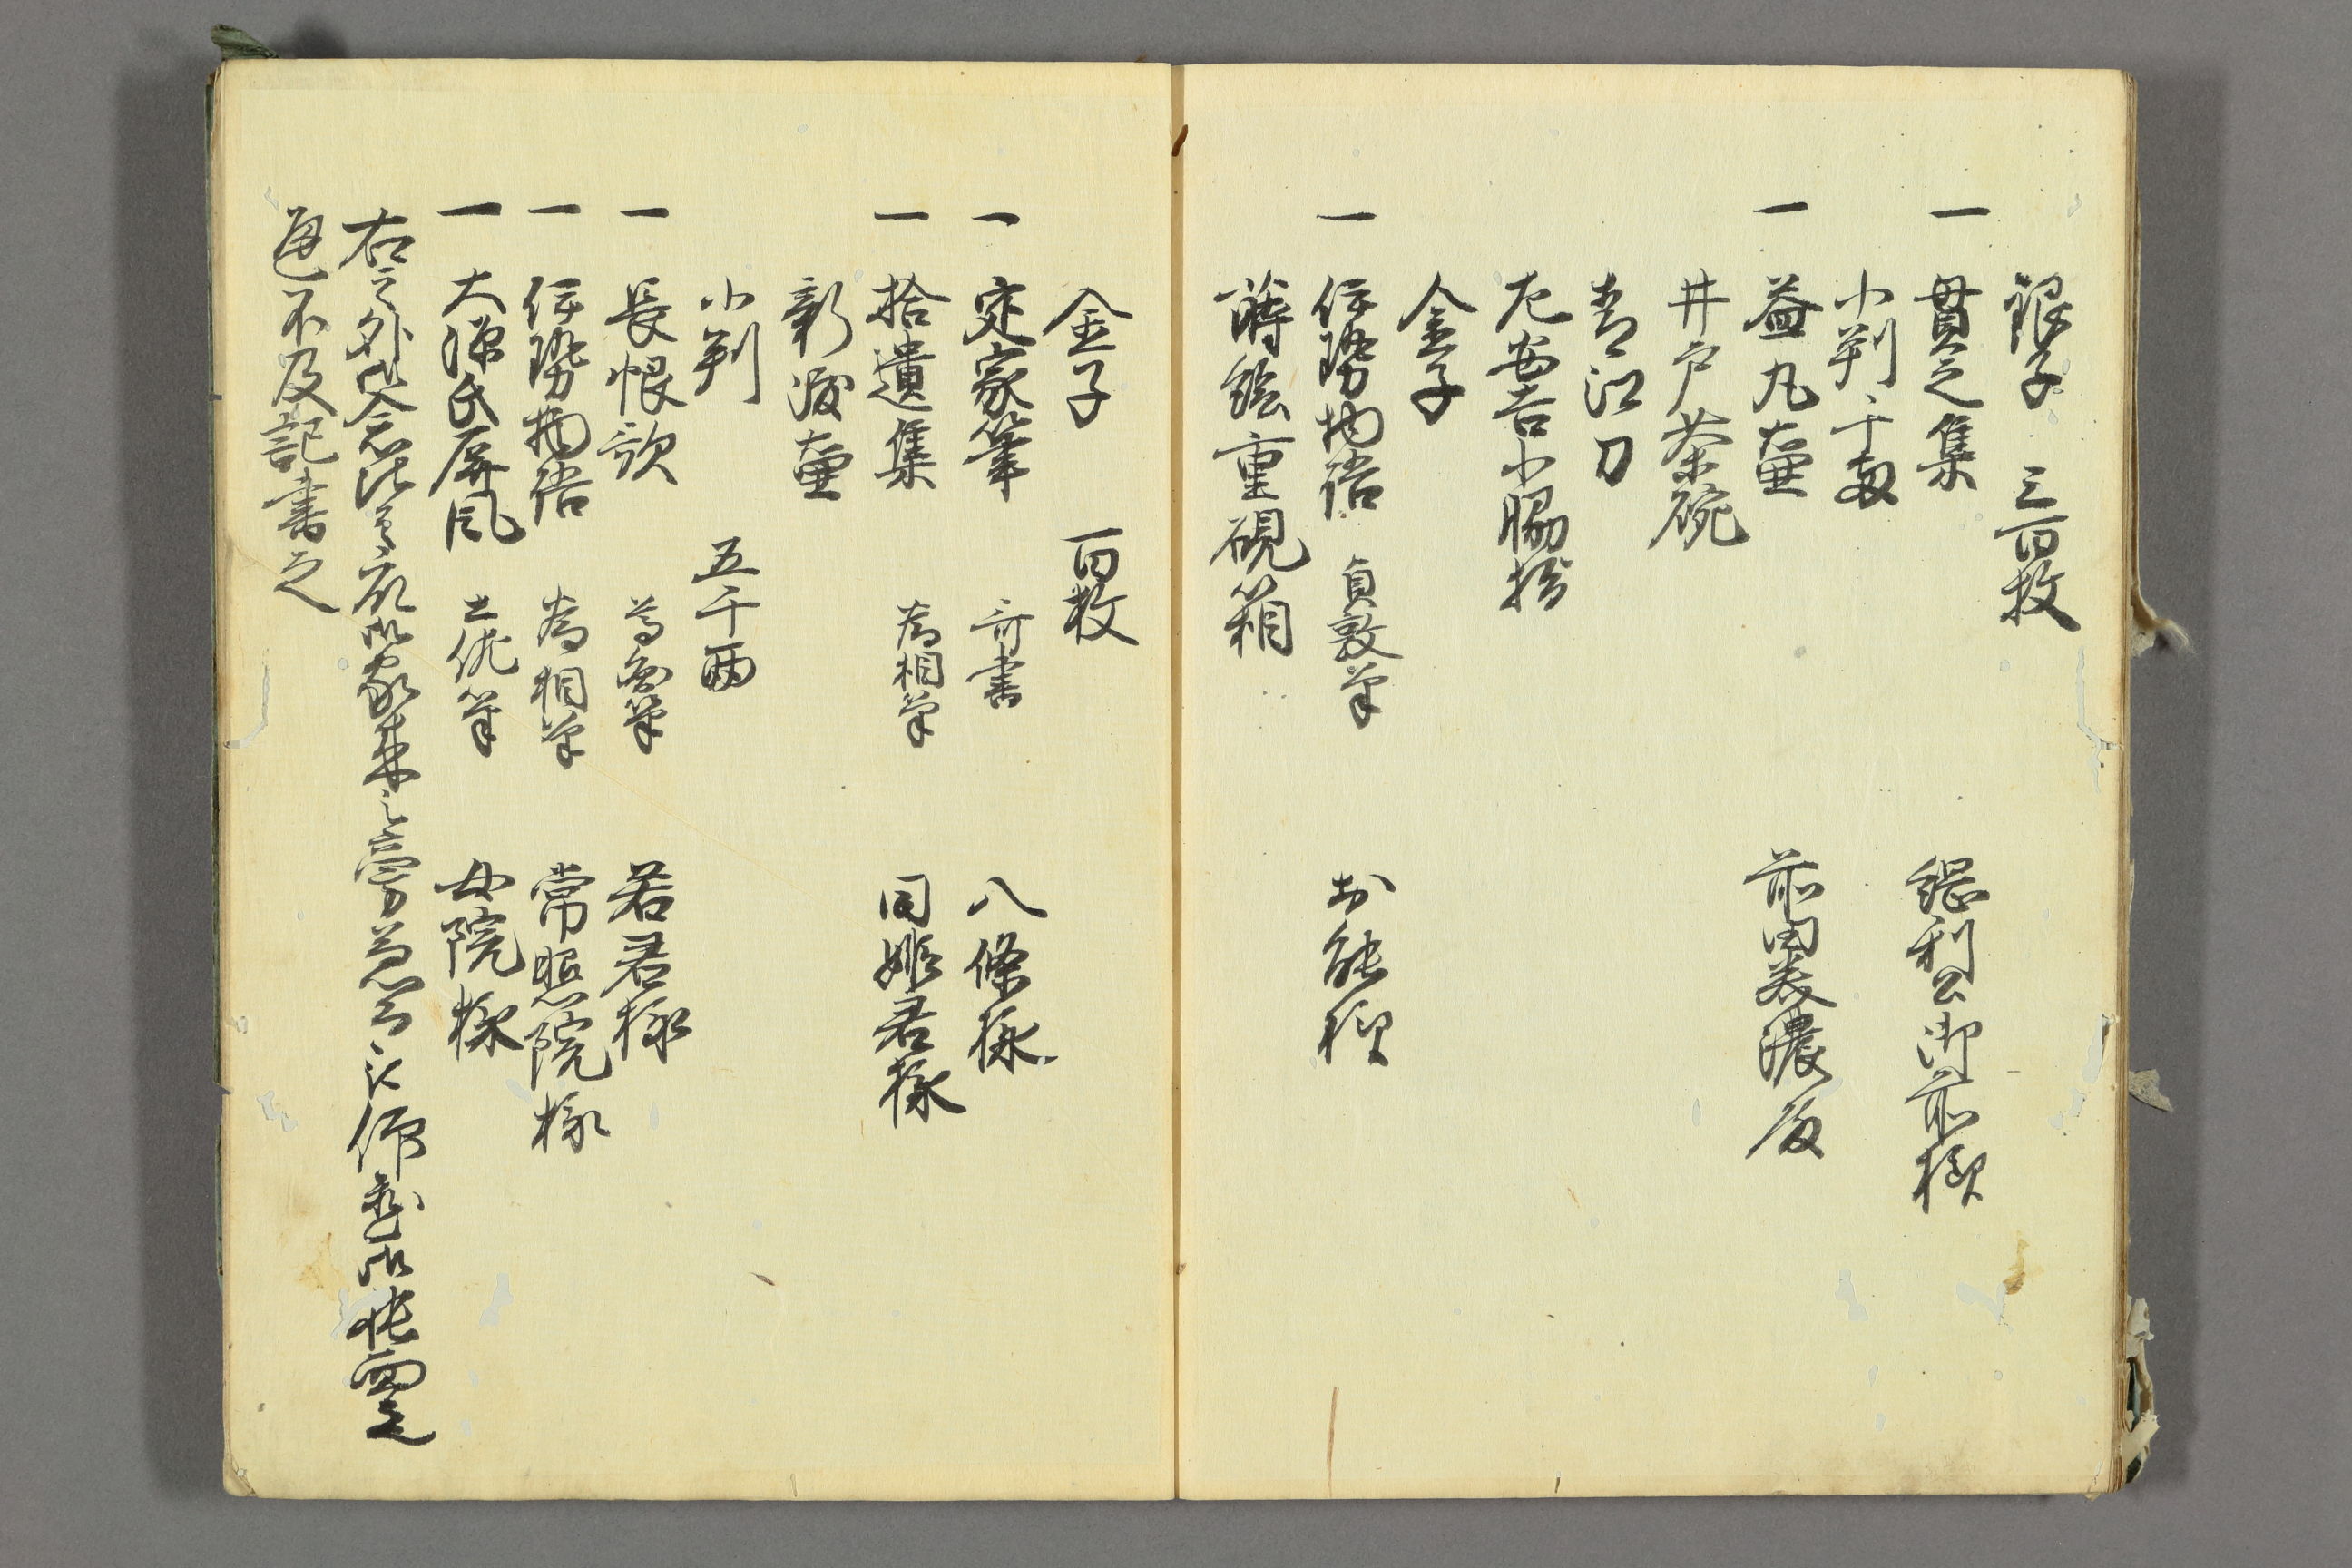 銀子 三百枚
一 貫之集 綱利公御前様
小判 千両
一 益丸壷 前田美濃殿
井戸茶碗
青江刀
左安吉小脇指
金子
一 伊勢物語 貞敦筆 お能様
蒔絵重硯箱
金子 百枚
一 定家筆 哥書 八條様
一 拾遺集 為相筆 同姫君様
新渡壷
小判 五千両
一 長恨歌 若君様
一 伊勢物語 為相筆 常照院様
一 大源氏屏風 土佐筆 女院様
右之外
不及記書之